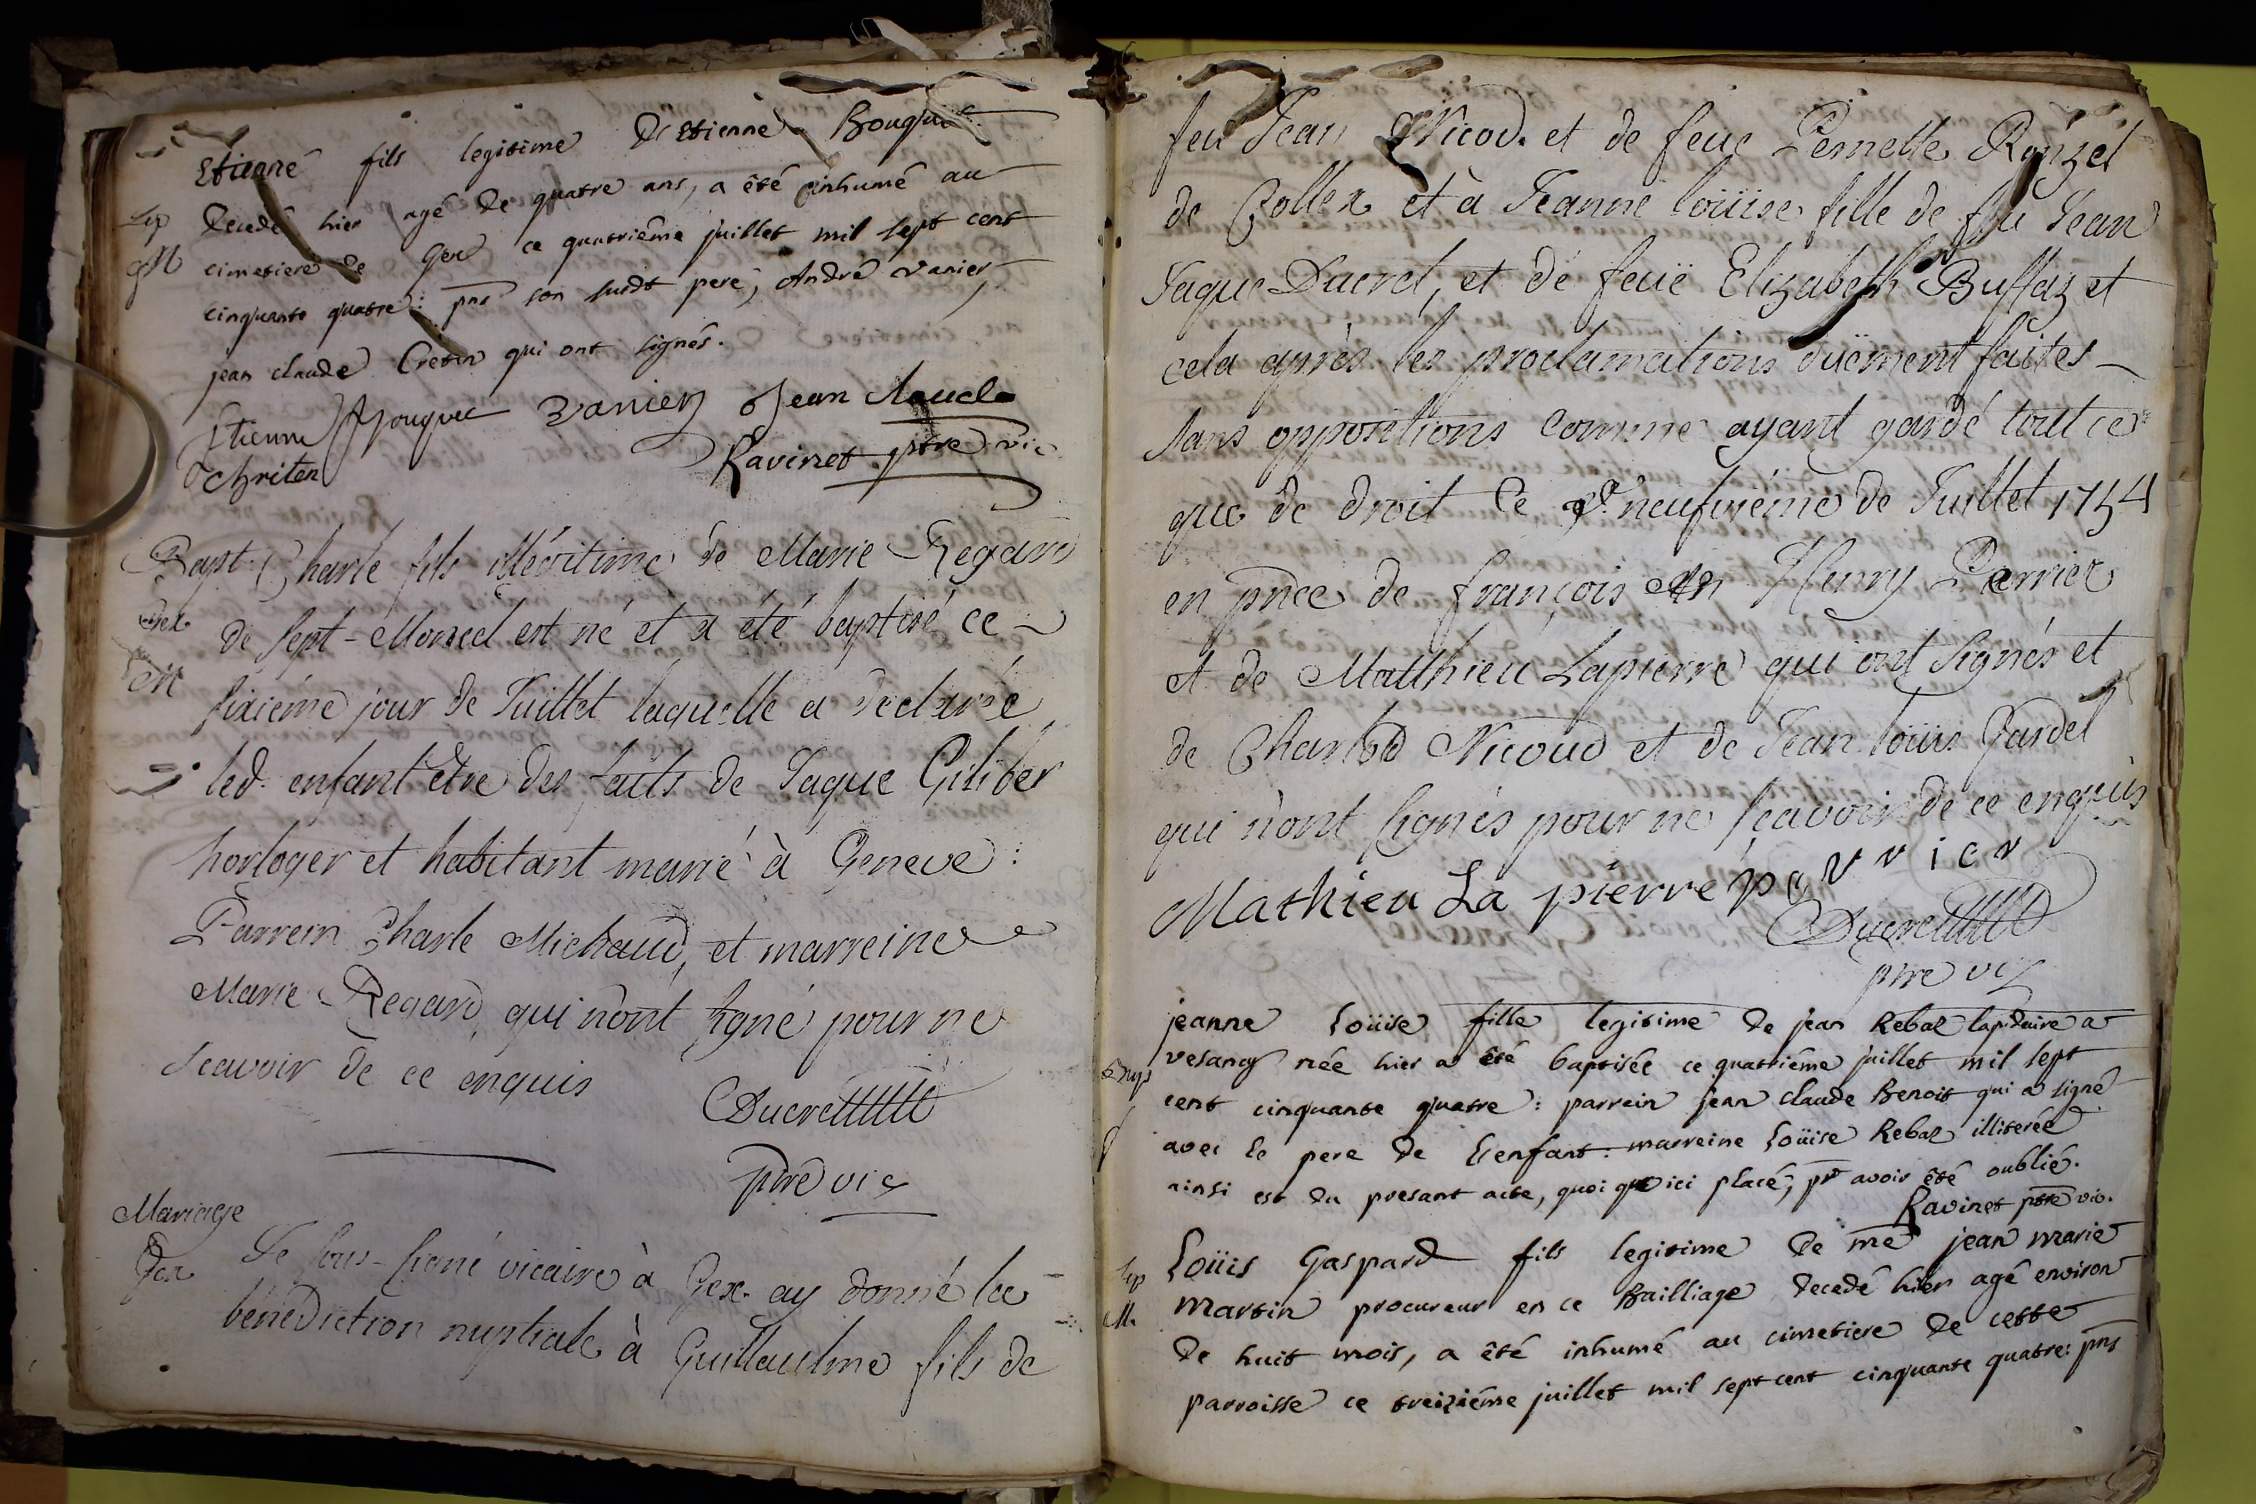 Etienné fils legitime D'Etienne Bouquet
Sep Decedé hier agé De quatre ans, a été inhumé au
cimetiere de Gex ce quatriême juillet mil sept cent
cinquante quatre: pns son susdt pere, André vanier,
jean claude Cretin qui ont signés.
Etienne Bouquet vanier Jean claude
chriten Ravinet ptre vic
Bapt. Charle fils illégitime de Marie Regard
Gex de Sept-Moncel est né et a été baptisé ce
sixiéme jour de Juillet laquelle a declarée
led. enfant être des faits de Jaque Giliber
horloger et habitant marié à Geneve:
Parrein Charle Michaud, et marreine
Marie Regard, qui n'ont signé pour ne
sçavoir de ce enquis
Ducret
ptre vic
Mariage
Gex Je sous-signé vicaire à Gex ay donné la
bénédiction nuptiale à Guillaulme fils de
feu Jean Nicod. et de feue Pernette Ronzel
de Collex et à Jeanne loüise fille de feu Jean
Jaque Ducret, et de feüe Elizabeth Buffaz et
cela après les proclamations düement faites
sans oppositions comme ayant gardé tout ce
que de droit le neufvième de Juillet 1754
en pnce de françois Henry Perrier
et de Matthieu Lapierre qui ont signés et
de Charlod Nicoud et de Jean loüis Gardel
qui n'ont signés pour ne sçavoir de ce enquis
Mathieu La pierre perrier
Ducret
ptre vic
jeanne Loüise fille legitime De jean Rebaz lapidaire a
vesancy née hier a été baptisée ce quatriéme juillet mil sept
cent cinquante quatre: parrein jean claude Benoit qui a signé
avec le pere De L'enfant: marreine Loüise Rebaz illiterée
ainsi est du present acte, quoi que ici placé, pr avoir été oublié.
Ravinet ptre vic.
Sep Loüis Gaspard fils legitime De me jean marie
M. martin procureur en ce Bailliage Decedé hier agé environ
De huit mois, a été inhumé au cimetiere De cette
parroisse ce treiziéme juillet mil sept cent cinquante quatre: pns